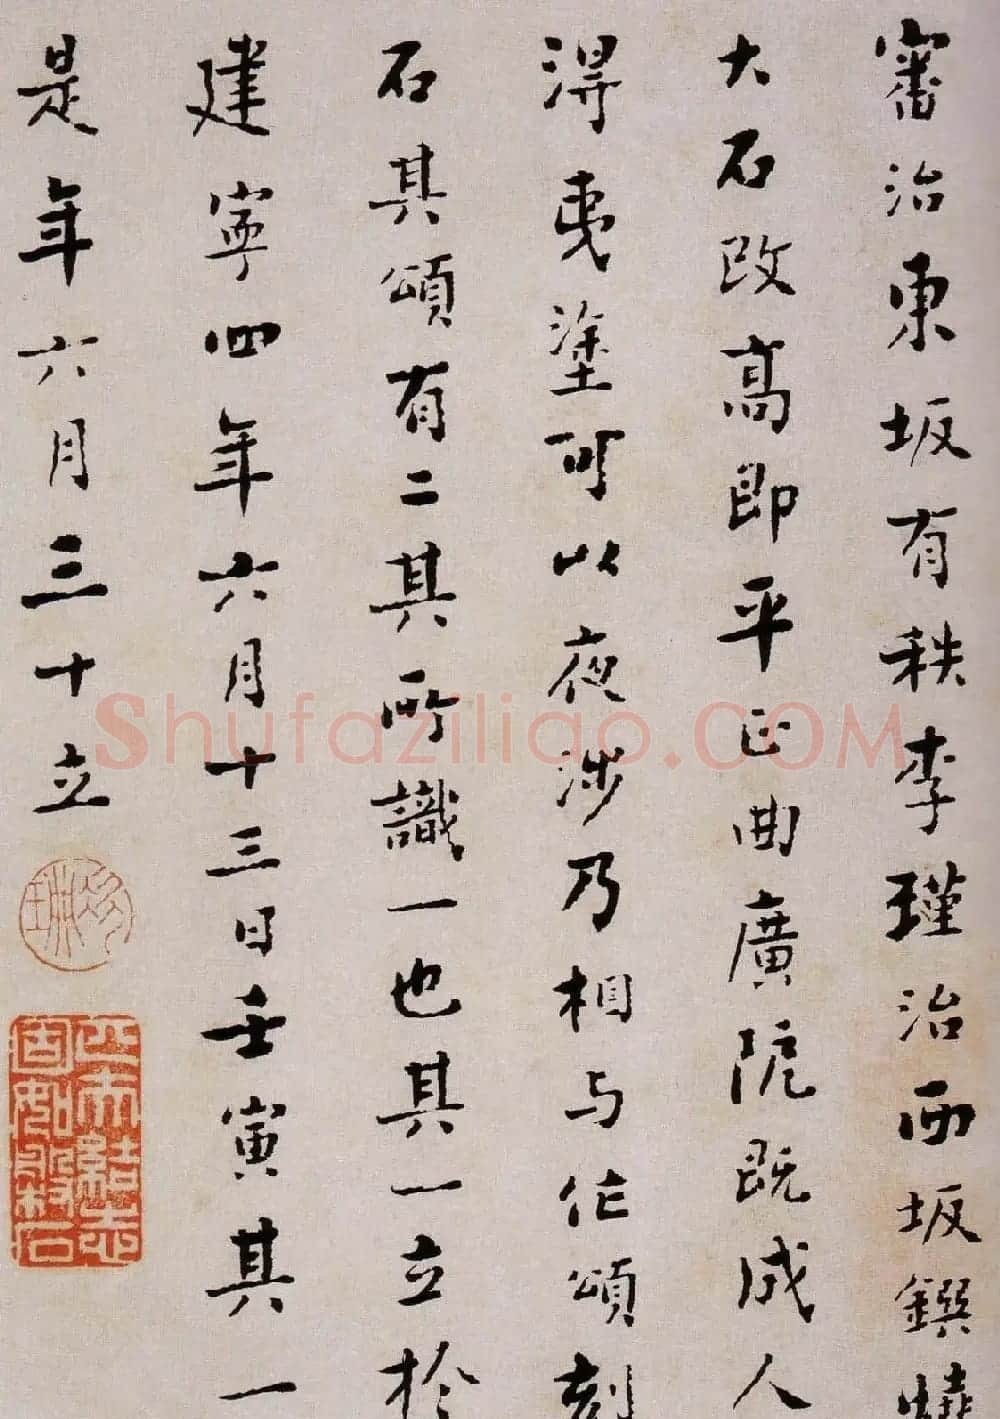 審治東坂有秩李瑾治西坂鐉燒
大石改高即平正曲廣阸既成人
淂夷塗可以夜涉乃相与作頌刻
石其頌有二其所識一也其一立於
建寧四年六月十三日壬寅其一
是年六月三十立
Shufaziliao.COM